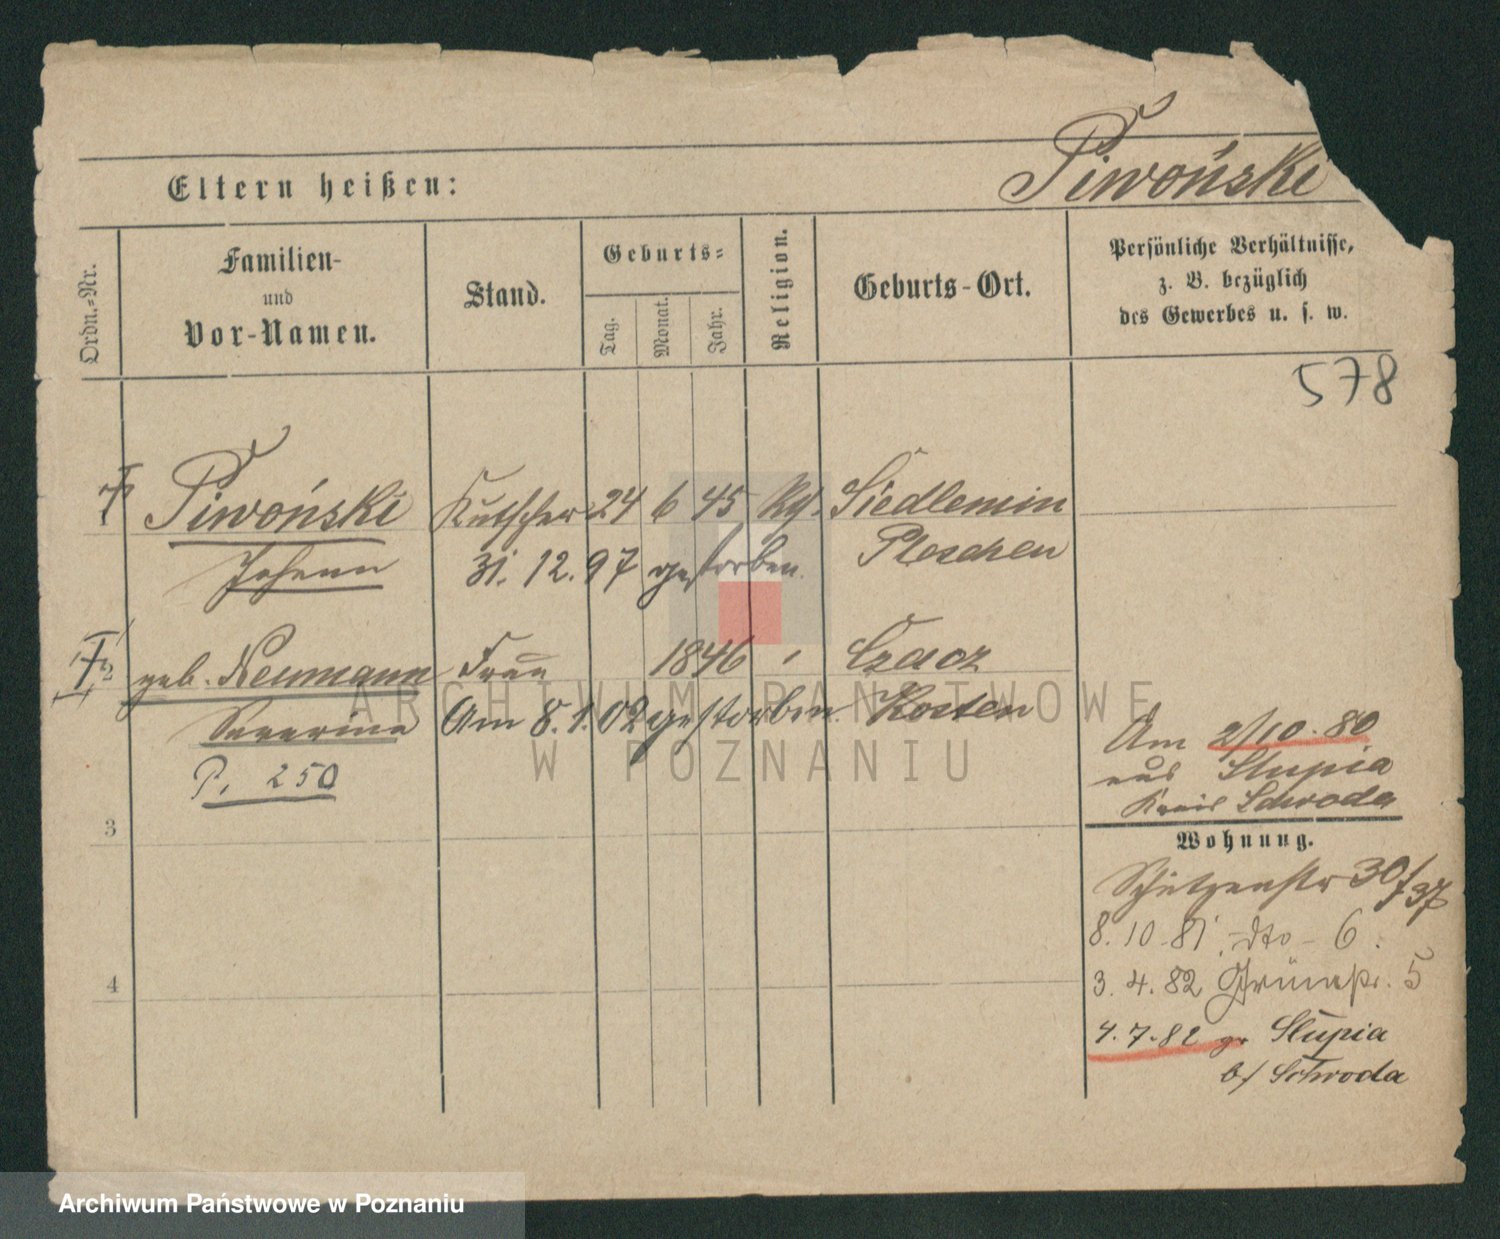 Piwoński
Eltern heißen:
Ordn.-Nr.
Familien-
und
Vor-Namen.
Stand.
Geburts-
Tag.
Monat.
Jahr.
Religion.
Geburts-Ort.
Persönliche Verhältnisse,
z. B. bezüglich
des Gewerbes u. s. w.
578
Piwoński Kutscher 24 6 45 Kth. Siedlemin
Johann 31. 12. 97 gestorben. Pleschen
2 geb. Neumann Frau 1846 " Czacz
Severina Am 8.1.02 gestorben. Kosten
P. 250
Am 2/10.80
aus Slupia
Kreis Schroda
3
Wohnung.
Schützenstr 30/37
8. 10. 81. dto - 6.
4
3. 4. 82 Grünestr. 5
4. 7. 82 gr Slupia
b/ Schroda
ARCHIWUM PAŃSTWOWE
W POZNANIU
Archiwum Państwowe w Poznaniu